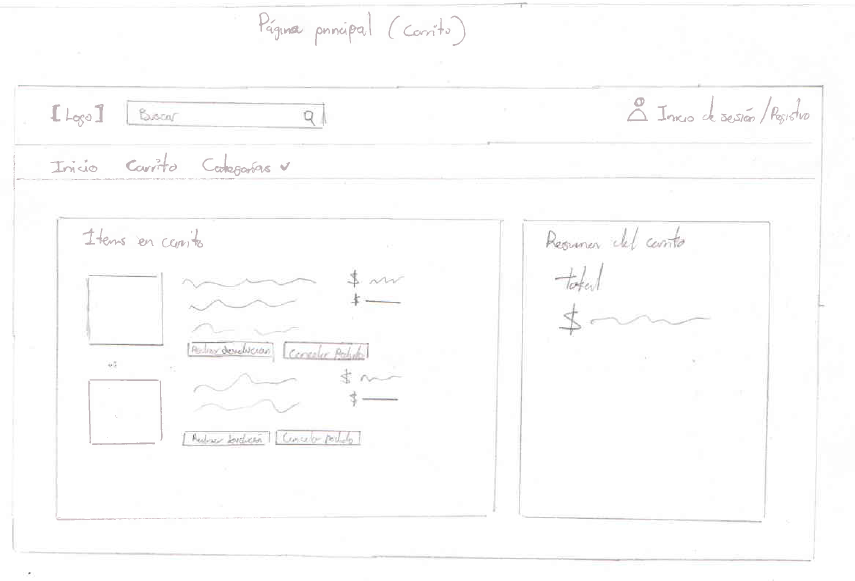 Página principal (Carrito)
[Logo] Buscar Inicio de sesión / Registro
Inicio Carrito Categorías
Items en carrito
$
$
Realizar devolución Cancelar Pedido
$
$
Realizar devolución Cancelar pedido
Resumen del carrito
total
$